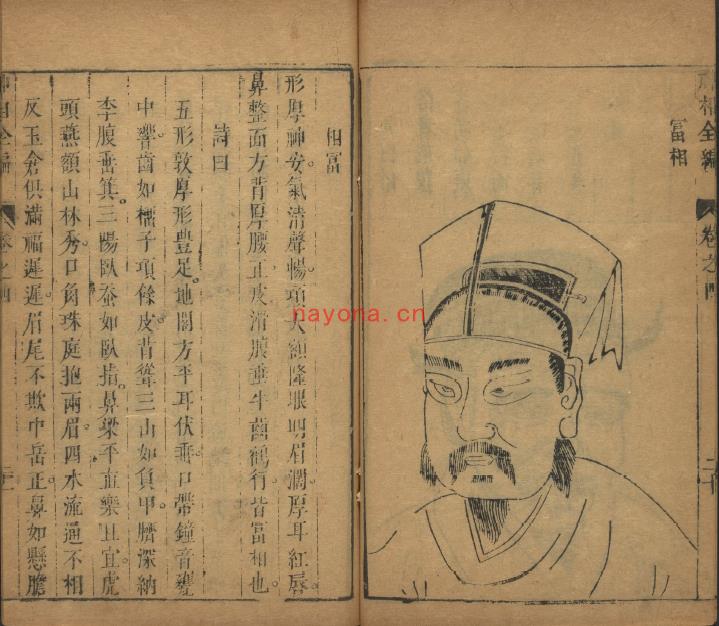 相全編
卷之四
冨相
相冨
形厚神安氣清聲暢。項大額隆眼明眉濶厚耳紅唇。
鼻整面方背厚腰正。皮滑腹垂牛齒鶴行。皆冨相也。
詩曰
五形敦厚形豊足。地閣方平耳伏垂。口帶鐘音甕
中響。齒如榴子項餘皮。背聳三山如負甲。臍深納
李腹垂箕。三陽臥蚕如臥指。鼻梁平直丑宜。虎
頭燕頷山林秀。口角珠庭抱兩眉。四水流通不相
反。玉倉俱滿福遲遲。眉尾不欺中岳正。鼻如懸膽
nayona.cn